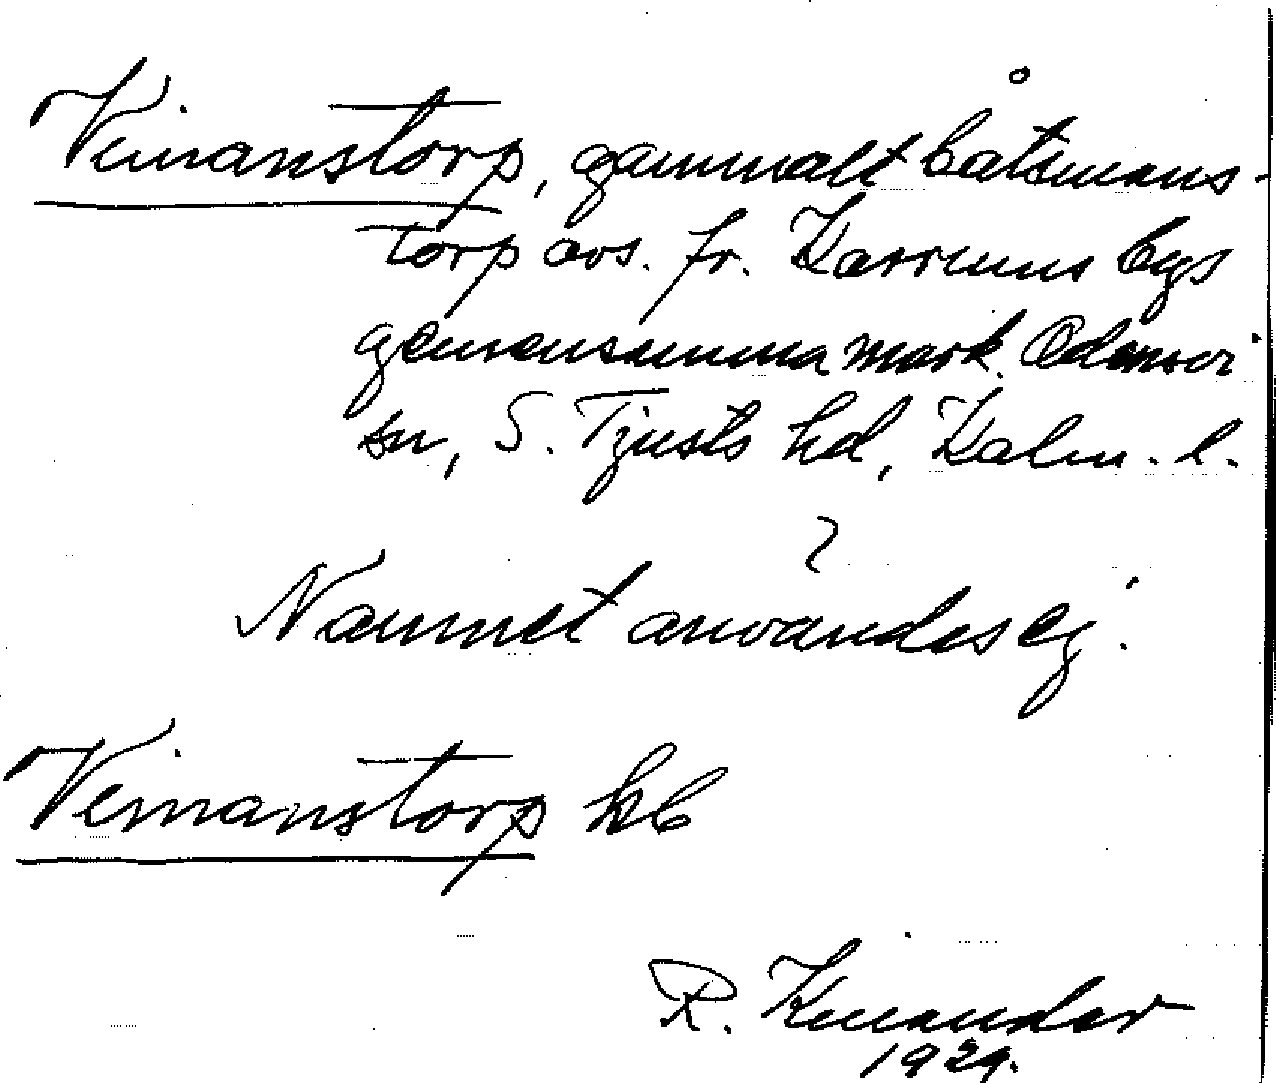 Veimanstorp, gammalt båtsmans-
torp avs. fr. Karrums bys
gemensamma mark. Odensvi
sn, S. Tjusts hd, Kalm. l.
Namnet användes ej.
Veimanstorp kb
R. Kinander
1929.